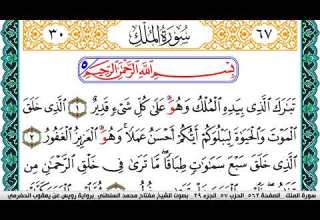 ٣٠ سُورَةُ المُلْكِ ٦٧
بِسْمِ اللَّهِ الرَّحْمَٰنِ الرَّحِيمِ
تَبَارَكَ الَّذِي بِيَدِهِ الْمُلْكُ وَهُوَ عَلَىٰ كُلِّ شَيْءٍ قَدِيرٌ ١ الَّذِي خَلَقَ
الْمَوْتَ وَالْحَيَوٰةَ لِيَبْلُوَكُمْ أَيُّكُمْ أَحْسَنُ عَمَلًا وَهُوَ الْعَزِيزُ الْغَفُورُ ٢
الَّذِي خَلَقَ سَبْعَ سَمَٰوَٰتٍ طِبَاقًا مَّا تَرَىٰ فِي خَلْقِ الرَّحْمَٰنِ مِن
سورة الملك الصفحة ٥٦٢ الحزب ٥٧ الجزء ٢٩ بصوت الشيخ مفتاح محمد السلطني برواية رويس عن يعقوب الحضرمي